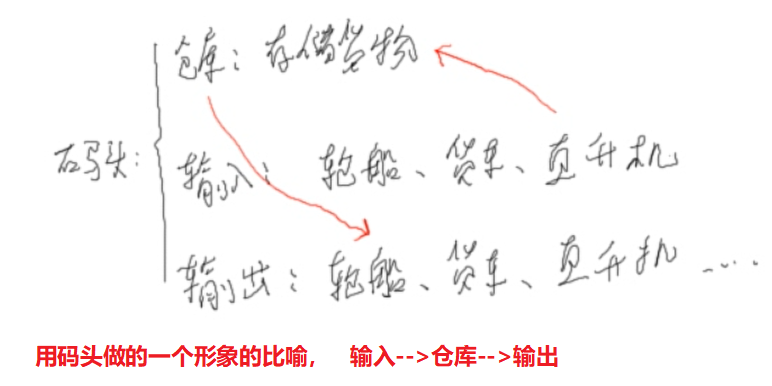 仓库：存储货物
码头：
输入：轮船、货车、直升机
输出：轮船、货车、直升机 ....
用码头做的一个形象的比喻， 输入-->仓库-->输出